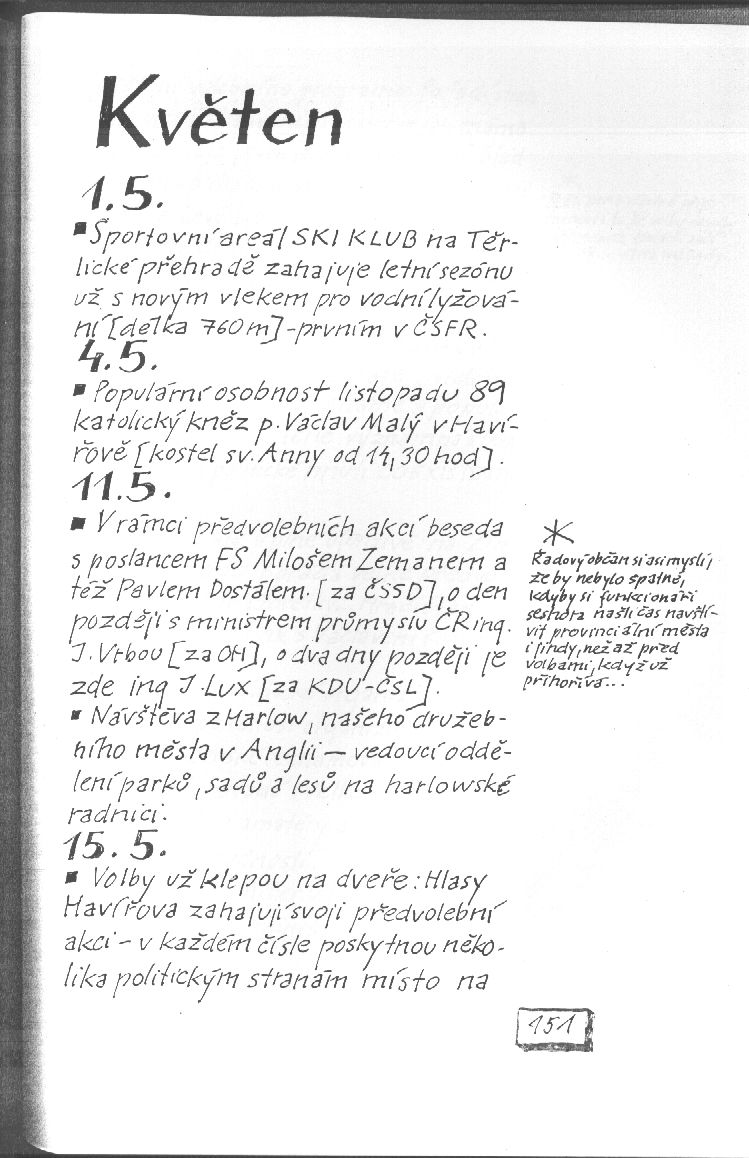 Květen
1.5.
▪ Sportovní areál SKI KLUB na Těr-
lické přehradě zahajuje letní sezónu
už s novým vlekem pro vodní lyžová-
ní [délka 760 m] - prvním v ČSFR.
4.5.
▪ Populární osobnost listopadu 89
katolický kněz p. Václav Malý v Haví-
řově [kostel sv. Anny od 14,30 hod].
11.5.
▪ V rámci předvolebních akcí beseda
s poslancem FS Milošem Zemanem a
též Pavlem Dostálem. [za ČSSD], o den
později s ministrem průmyslu ČR ing.
J. Vrbou [za OH], o dva dny později je
zde ing J. Lux [za KDU-ČSL].
▪ Návštěva z Harlow, našeho družeb-
ního města v Anglii — vedoucí oddě-
lení parků, sadů a lesů na harlowské
radnici.
15.5.
▪ Volby už klepou na dveře: Hlasy
Havířova zahajují svoji předvolební
akci - v každém čísle poskytnou něko-
lika politickým stranám místo na
*
Řadový občan si asi myslí,
že by nebylo špatné,
kdyby si funkcionáři
seshora našli čas navští-
vit provinciální města
i jindy, než až před
volbami, když už
přihořívá...
151